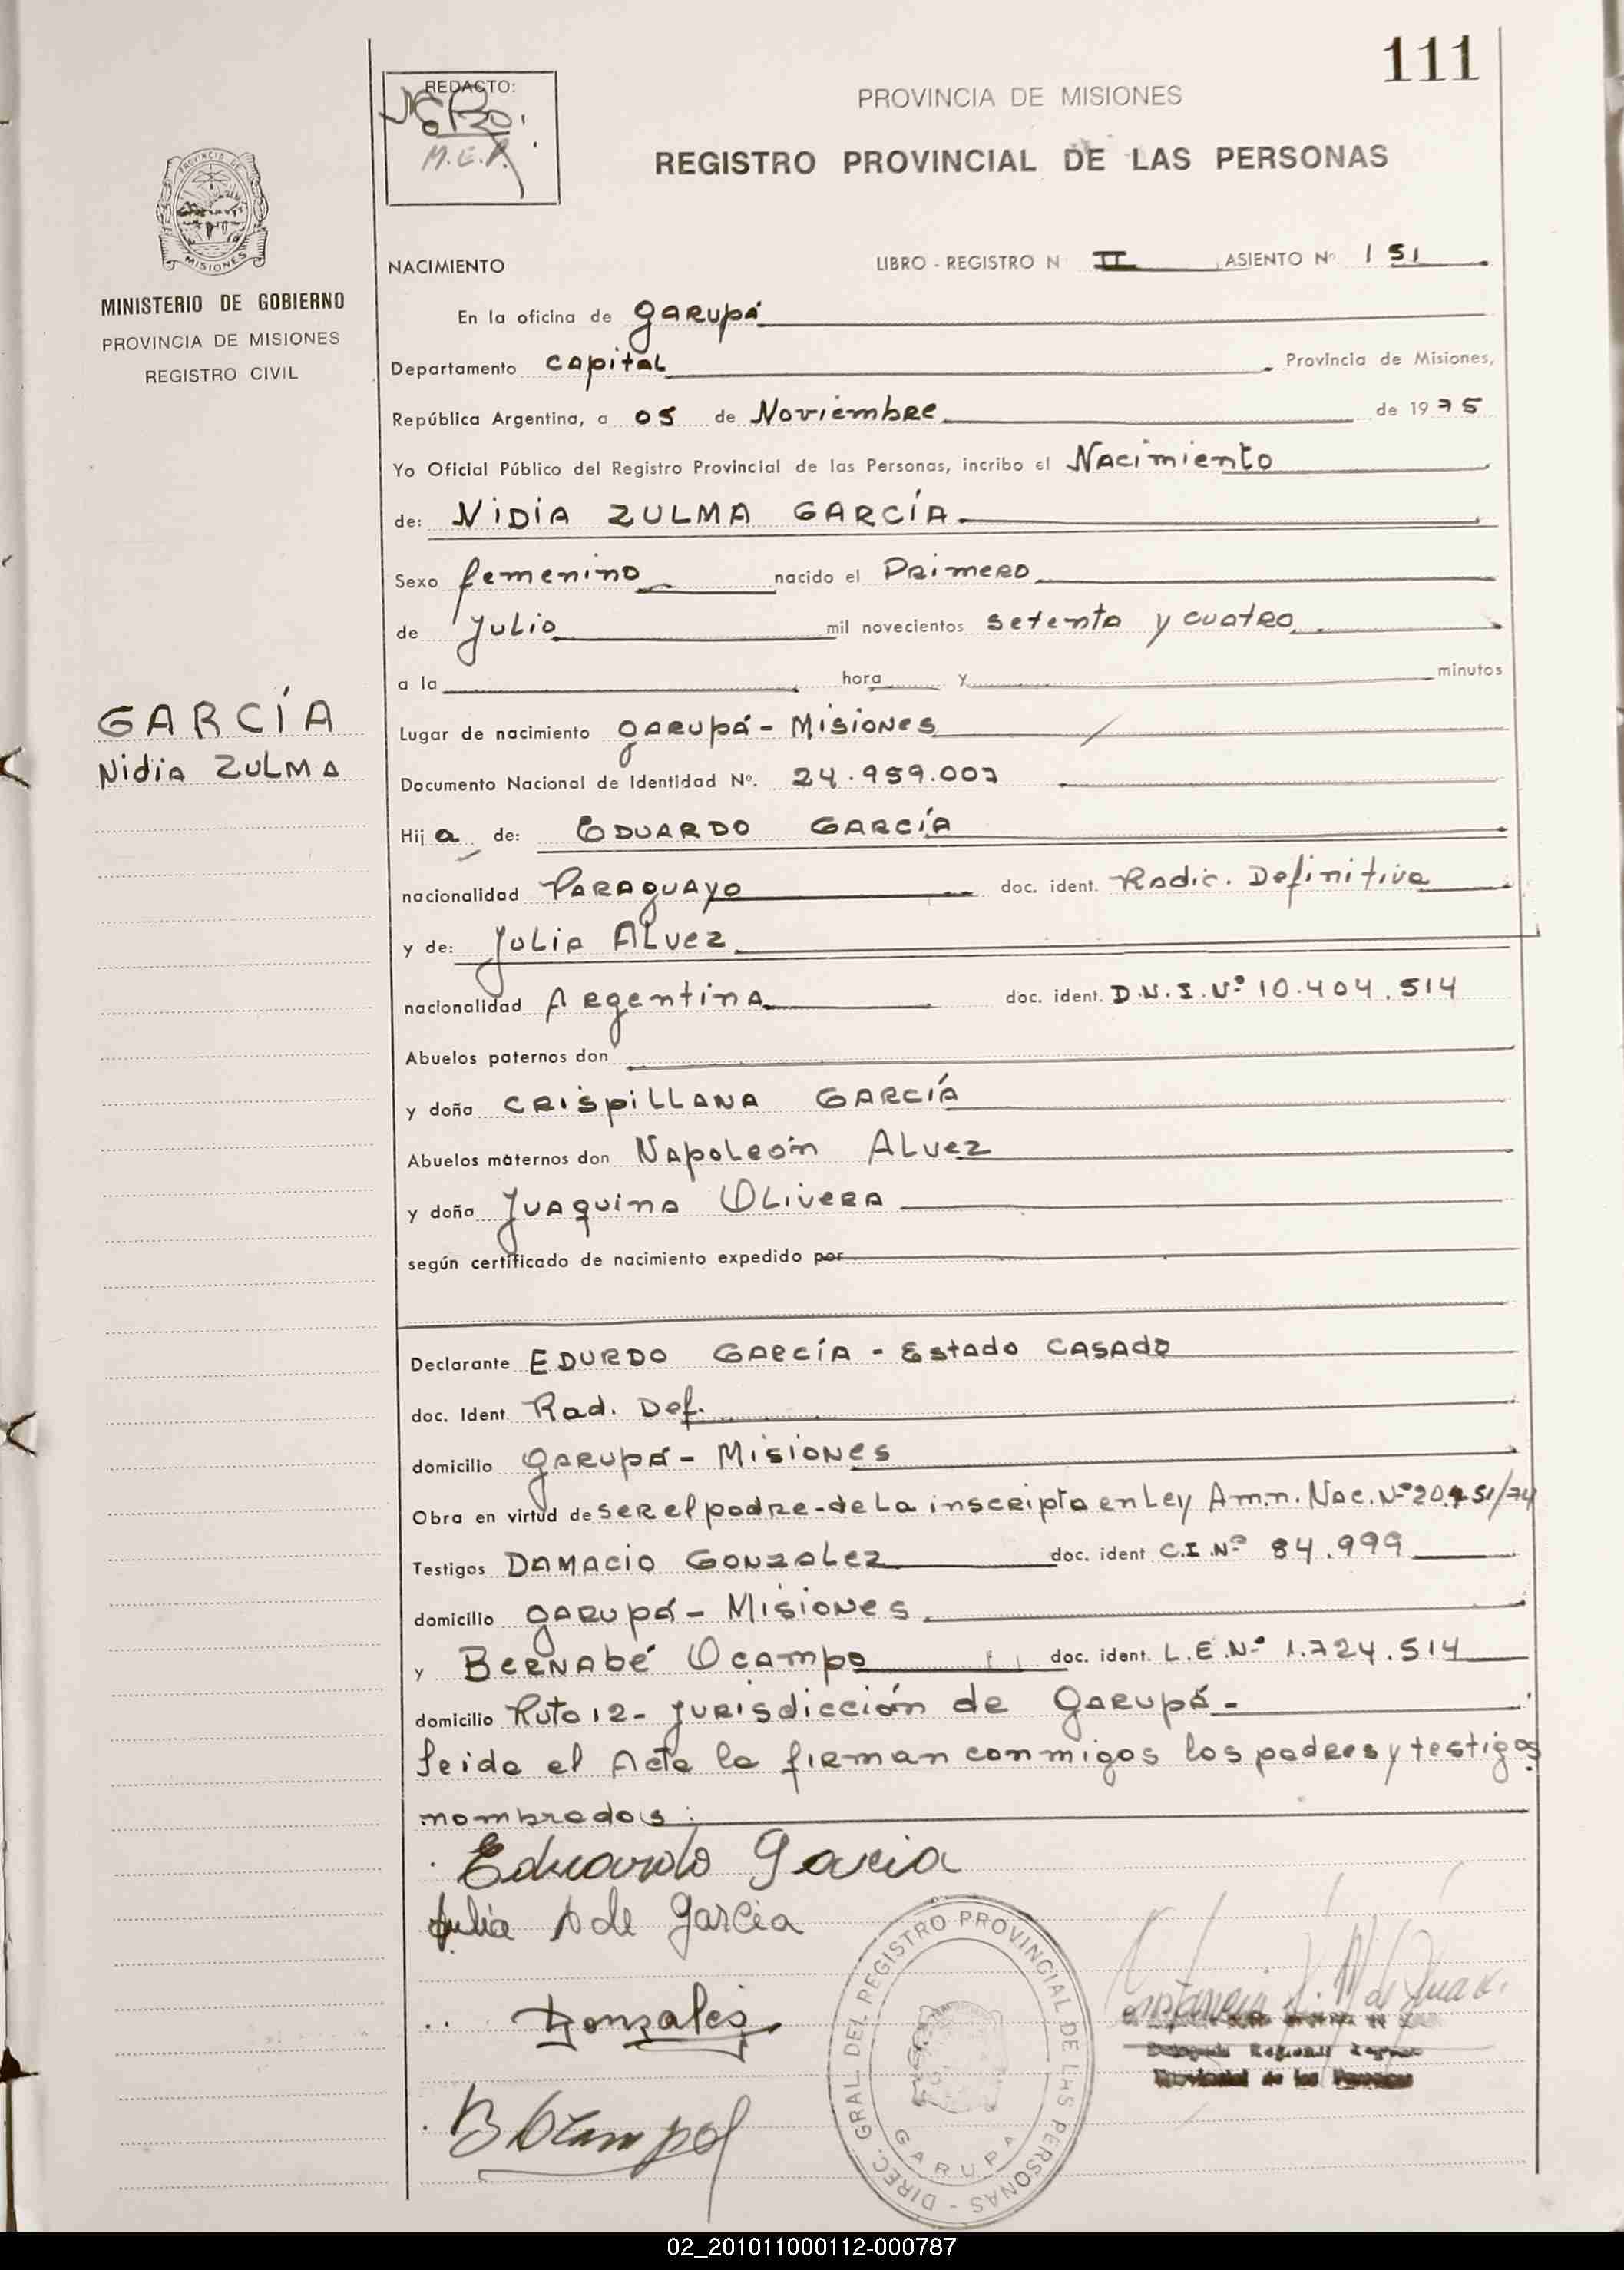 111
REDACTO:
M.E.R.
PROVINCIA DE MISIONES
REGISTRO PROVINCIAL DE LAS PERSONAS
PROVINCIA DE
MISIONES
MINISTERIO DE GOBIERNO
PROVINCIA DE MISIONES
REGISTRO CIVIL
NACIMIENTO LIBRO - REGISTRO N II ASIENTO Nº 151
En la oficina de garupá
Departamento capital Provincia de Misiones,
República Argentina, a 05 de Noviembre de 1975
Yo Oficial Público del Registro Provincial de las Personas, incribo el Nacimiento
de: NIDIA ZULMA GARCÍA
Sexo femenino nacido el Primero
de Julio mil novecientos setenta y cuatro
a la hora y minutos
GARCÍA
Nidia ZULMA
Lugar de nacimiento garupá - Misiones
Documento Nacional de Identidad Nº. 24.959.007
Hija de: EDUARDO GARCÍA
nacionalidad Paraguayo doc. ident. Radic. Definitiva
y de: Julia Alvez
nacionalidad Argentina doc. ident. D.N.I. Nº 10.404.514
Abuelos paternos don
y doña CRISPILLANA GARCÍA
Abuelos maternos don Napoleón Alvez
y doña Juaquina Olivera
según certificado de nacimiento expedido por
Declarante EDURDO GARCÍA - Estado CASADO
doc. Ident. Rad. Def.
domicilio garupá - Misiones
Obra en virtud de ser el padre - de la inscripta en Ley Amn. Nac. Nº 20.751/74
Testigos DAMACIO GONZALEZ doc. ident C.I.Nº 84.999
domicilio garupá - Misiones
y Bernabé Ocampo doc. ident. L.E.Nº 1.724.514
domicilio Ruta 12 - jurisdicción de garupá -
leida el Acta la firman conmigos los padres y testigos
nombrados:
Eduardo Garcia
Julia A de Garcia
Gonzales
B Ocampo
DIREC. GRAL DEL REGISTRO PROVINCIAL DE LAS PERSONAS -
GARUPA
Provincial de las Personas
02_201011000112-000787